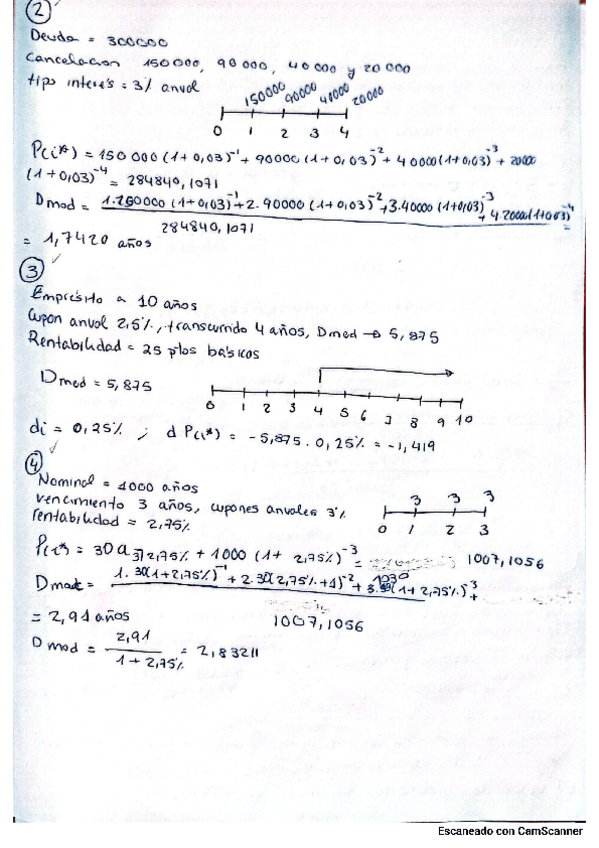 2
Deuda = 300000
Cancelacion 150000, 90000, 40000 y 20000
tipo interés = 3% anual
150000 90000 40000 20000
0 1 2 3 4
P(i*) = 150000 (1+0,03)⁻¹ + 90000 (1+0,03)⁻² + 40000 (1+0,03)⁻³ + 20000
(1+0,03)⁻⁴ = 284840,1071
Dmod = 1.150000 (1+0,03)⁻¹ + 2.90000 (1+0,03)⁻² + 3.40000 (1+0,03)⁻³ + 4.20000 (1+0,03)⁻⁴ =
284840,1071
= 1,7420 años
3
Empréstito a 10 años
Cupon anual 2,5%, transcurrido 4 años, Dmed → 5,875
Rentabilidad = 25 ptos básicos
Dmed = 5,875
0 1 2 3 4 5 6 7 8 9 10
di = 0,25% ; d P(i*) = -5,875 . 0,25% = -1,419
4
Nominal = 1000 años
vencimiento 3 años, cupones anuales 3%
rentabilidad = 2,75%
3 3 3
0 1 2 3
P(i* = 30 a 3⅂2,75% + 1000 (1+ 2,75%)⁻³ = 1007,1056
= 1. 30(1+2,75%)⁻¹ + 2.30(2,75%+1)⁻² + 3.1030(1+2,75%)⁻³ +
1007,1056
= 2,91 años
Dmod = 2,91 = 2,83211
1+2,75%
Escaneado con CamScanner